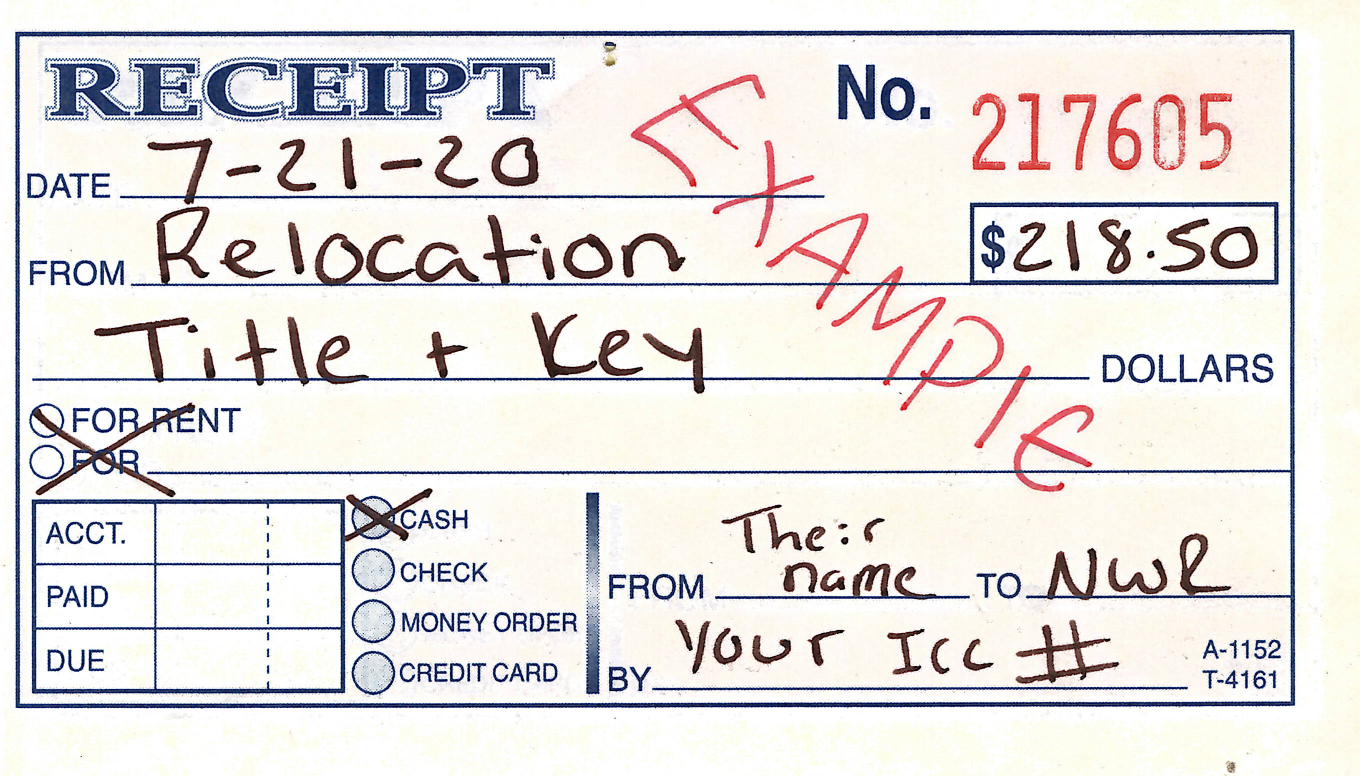 RECEIPT
No. 217605
DATE 7-21-20
EXAMPLE
FROM Relocation $218.50
Title + Key DOLLARS
FOR RENT
FOR
ACCT.
PAID
DUE
CASH
CHECK
MONEY ORDER
CREDIT CARD
FROM Their name TO NWR
BY Your ICC #
A-1152
T-4161